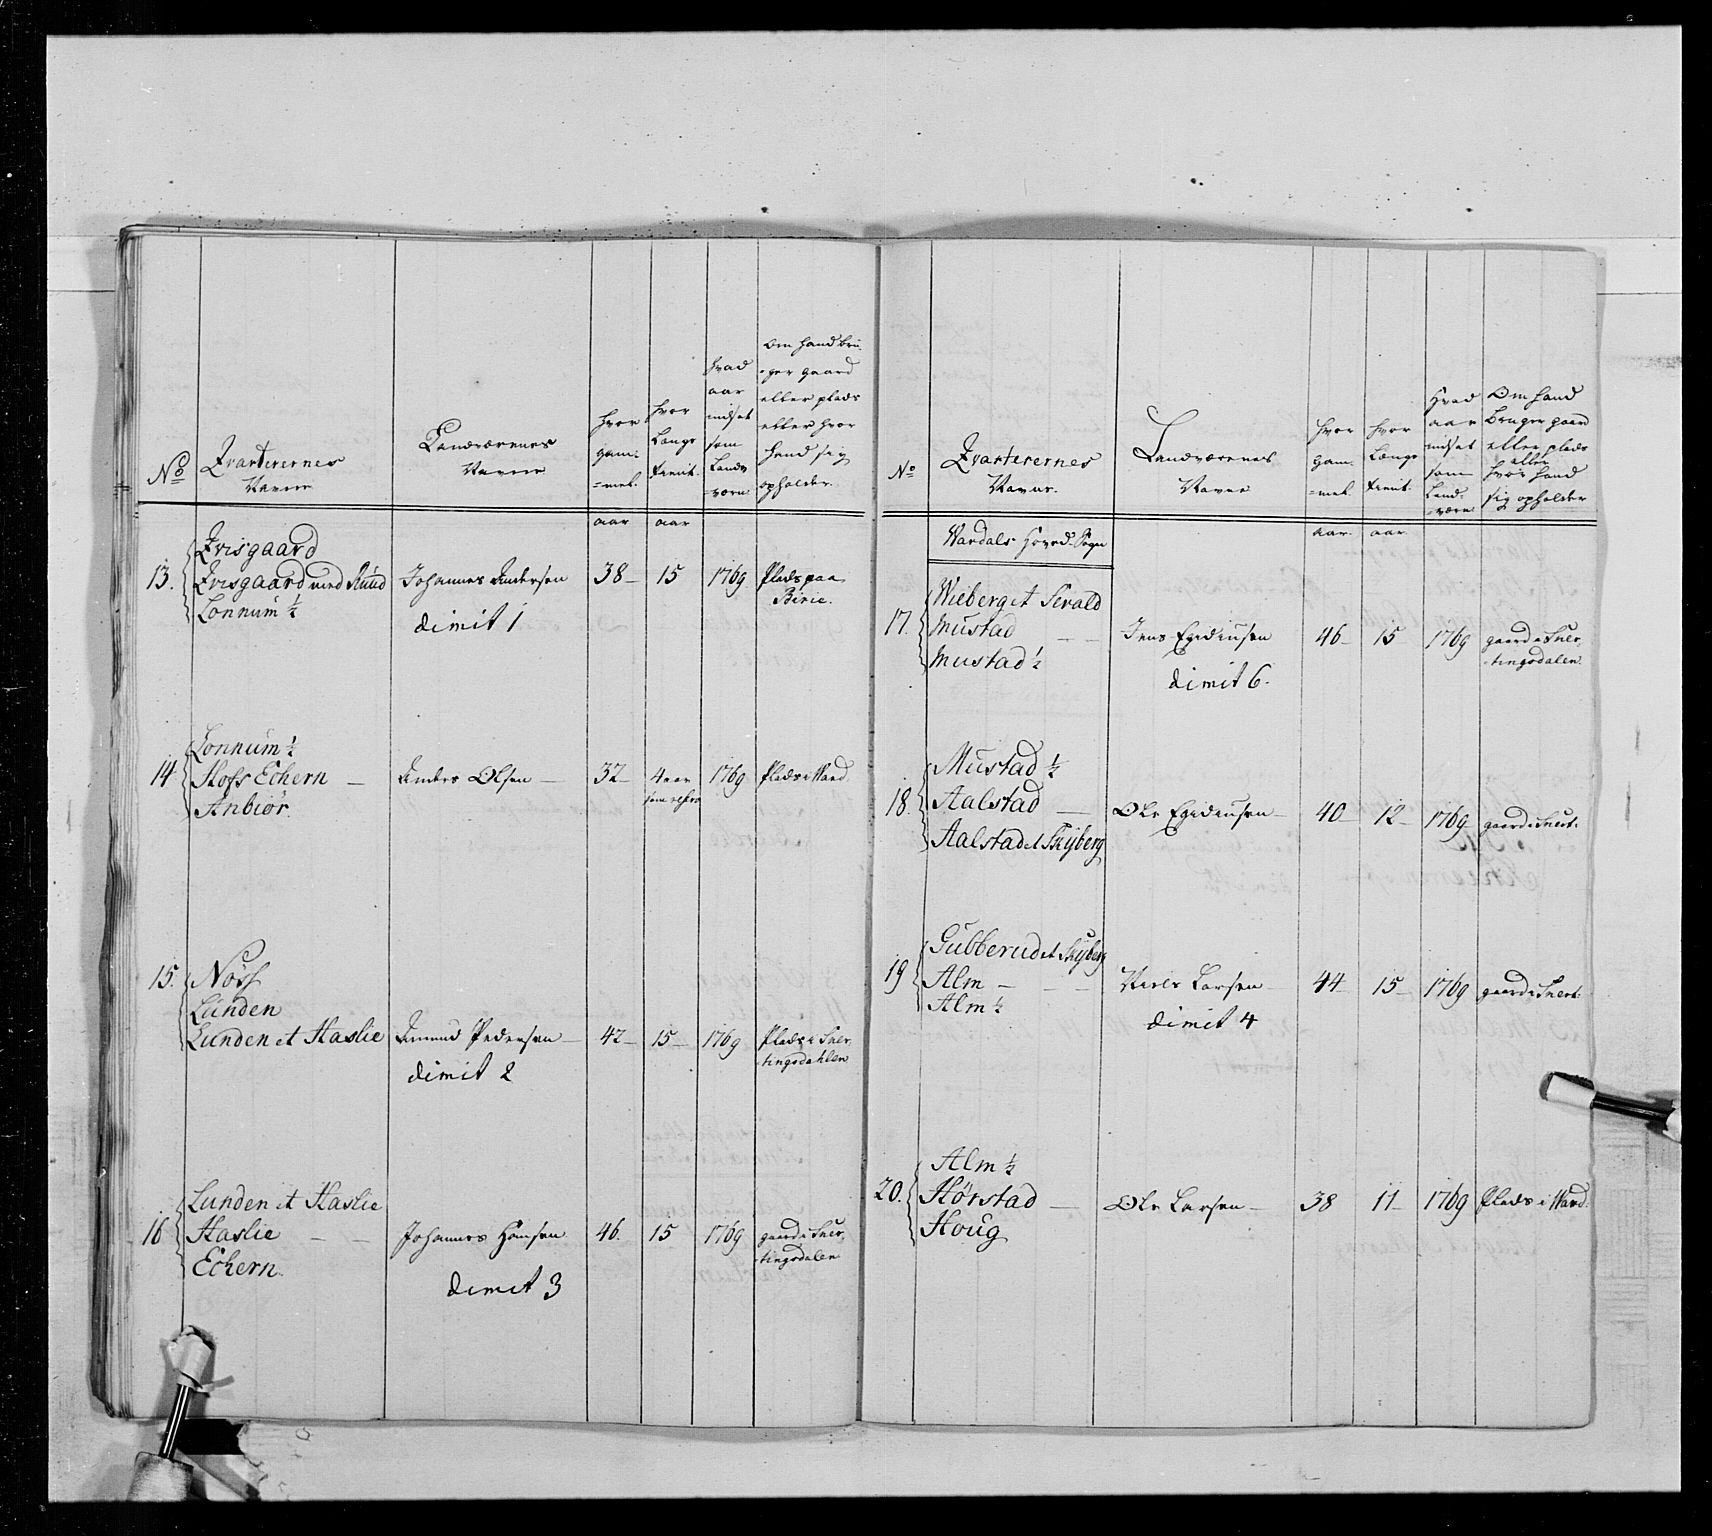 No
Qvarterernes
Navne
Landværenes
Navne
hvor
gam=
=mel.
hvor
Længe
tient.
hvad
aar
indsat
som
Landv
=værn
om hand bru=
=ger gaard
eller plads
eller hvor
hand sig
opholder.
aar
aar
13.
Qvisgaard
Qvisgaard med Ruud
Lonnum ½
Johannes Andersen
dimit 1
38
15
1769
Plads paa
Birie.
14
Lonnum ½
Echern
Anbiør.
Anders Olsen
32
4 aar
som
1769
Plads i Vard
15.
Nøss
Lunden
Lunden et Haslie
Amund Pedersen
dimit 2
42
15
1769
Plads i Sner
tingsdahlen
16
Lunden et Haslie
Haslie
Echern.
Johannes Hansen
dimit 3
46.
15
1769
gaard i Sner
tingsdalen
No
Qvarterernes
Navne.
Landværenes
Navne
hvor
gam
=mel
hvor
Længe
tient.
Hvad
aar
indsat
som
Land=
=værn
Om hand
bruger gaard
eller plads
eller
hvor hand
sig opholder
aar.
aar.
Wardals Hoved-Sogn
17.
Wieberg et Sevald
Mustad
Mustad ½
Jens Egidiusen
dimit 6.
46
15
1769
gaard i Sner=
=tingsdalen.
18.
Mustad ½
Aalstad
Aalstad et Skÿberg
Ole Egidiusen
40
12
1769
gaard i Snert:
19
Gubberud et Skÿberg
Alm
Alm ½
Niels Larsen
dimit 4
44
15
1769
gaard i Snert:
20.
Alm ½
Hørstad
Houg
Ole Larsen
38
11
1769
Plads i Vard.